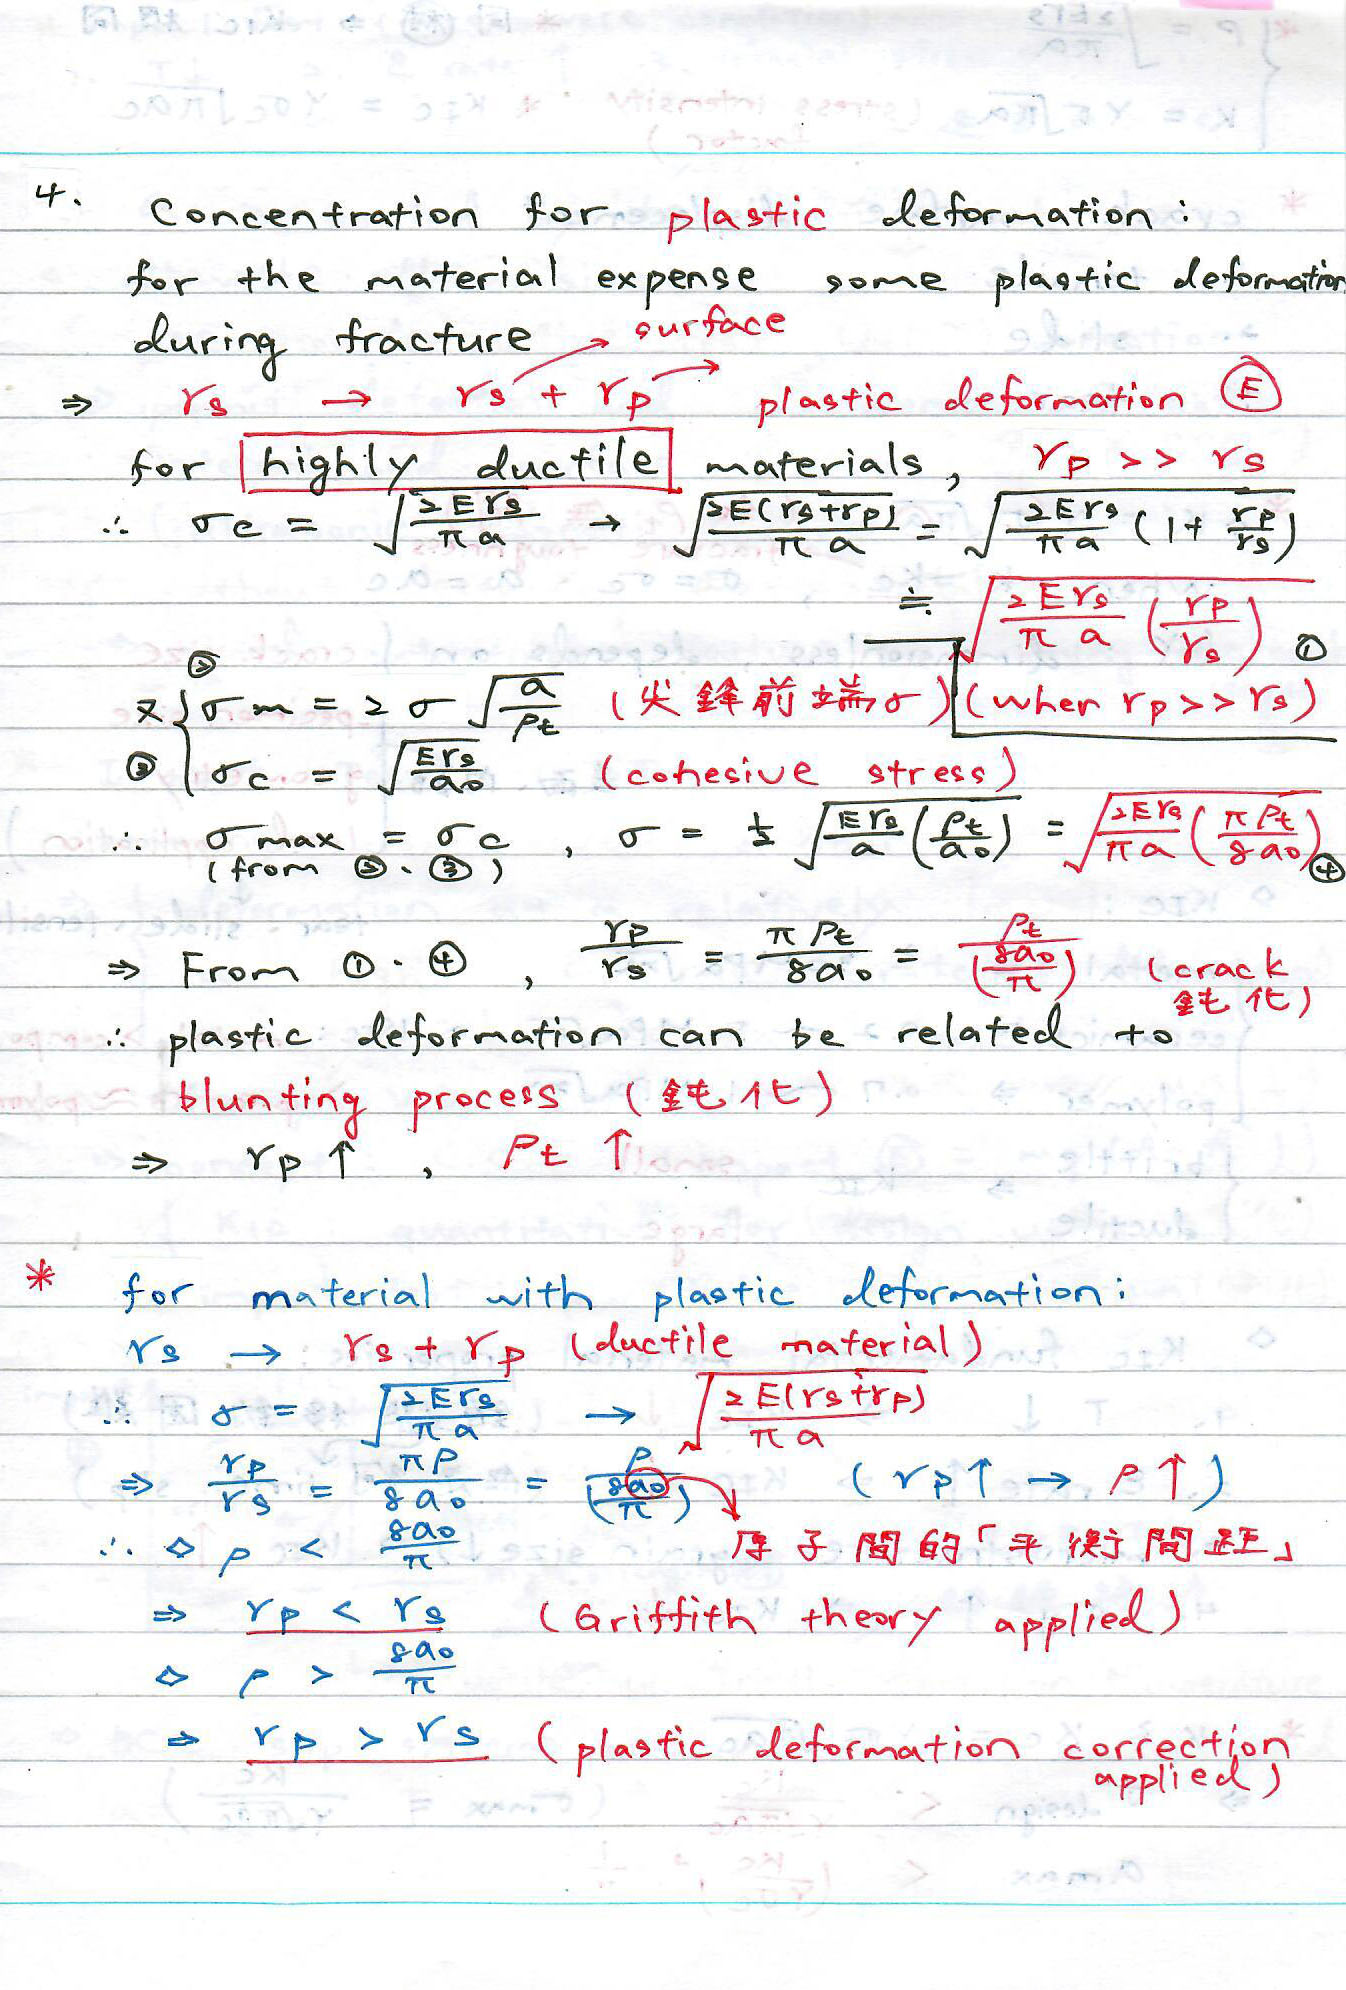 4. Concentration for plastic deformation:
for the material expense some plastic deformation
during fracture
surface
⇒ rs → rs + rp plastic deformation Ⓔ
for highly ductile materials, rp >> rs
∴ σc = √(2Ers/πa) → √(2E(rs+rp)/πa) = √(2Ers/πa (1+ rp/rs))
≒ √(2Ers/πa (rp/rs)) ①
又 { ② σm = 2σ√(a/ρt) (尖鋒前端σ) (when rp>>rs)
③ σc = √(Ers/a0) (cohesive stress)
∴ σmax = σc , σ = ½ √(Ers/a (ρt/a0)) = √(2Ers/πa (πρt/8a0)) ④
(from ②、③)
⇒ From ①.④, rp/rs = πρt/8a0 = ρt/(8a0/π) (crack
鈍化)
∴ plastic deformation can be related to
blunting process (鈍化)
⇒ rp↑, ρt↑
* for material with plastic deformation:
rs → rs + rp (ductile material)
∴ σ = √(2Ers/πa) → √(2E(rs+rp)/πa)
⇒ rp/rs = πρ/8a0 = ρ/(8a0/π) (rp↑ → ρ↑)
∴ ◇ ρ < 8a0/π 原子間的「平衡間距」
⇒ rp < rs (Griffith theory applied)
◇ ρ > 8a0/π
⇒ rp > rs (plastic deformation correction
applied)